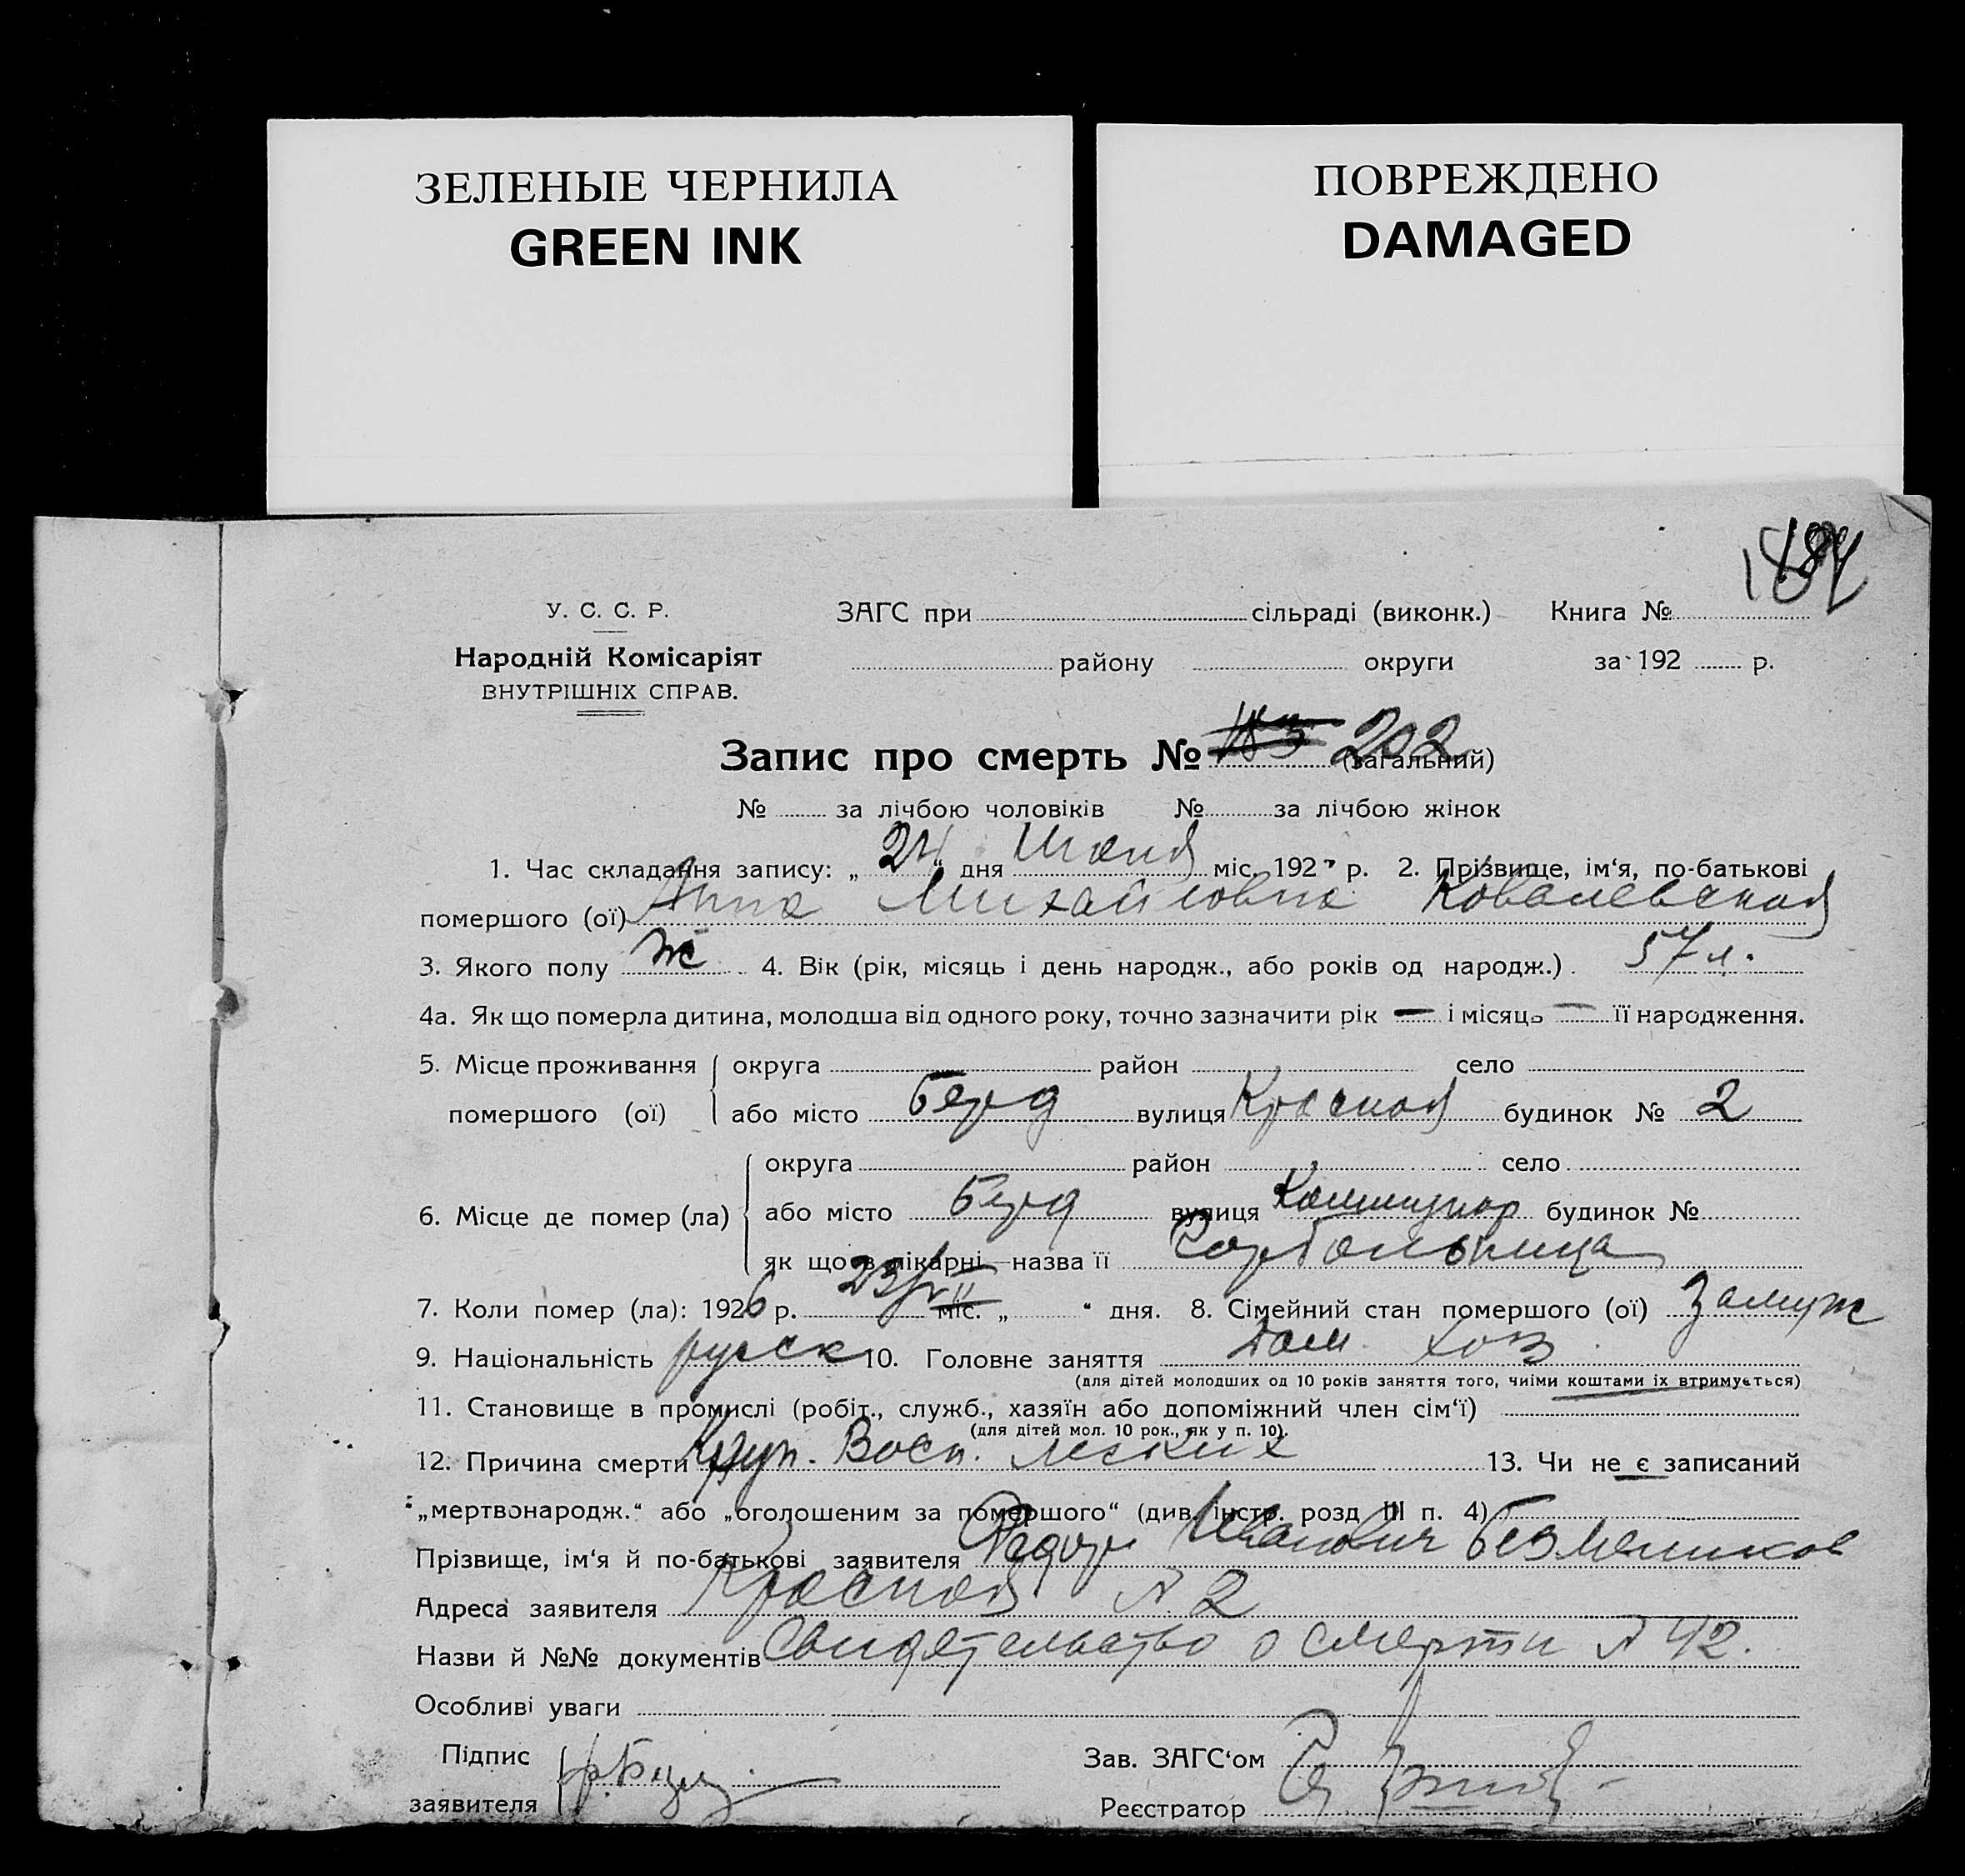 ЗЕЛЕНЫЕ ЧЕРНИЛА
GREEN INK
ПОВРЕЖДЕНО
DAMAGED
У. С. С. Р.
Народній Комісаріят
ВНУТРІШНІХ СПРАВ.
ЗАГС при сільраді (виконк.) Книга №
району округи за 192 р.
Запис про смерть № 202 (загальний)
№ за лічбою чоловіків № за лічбою жінок
1. Час складання запису: „24“ дня Июня міс. 192 р. 2. Прізвище, ім‘я, по-батькові
помершого (ої) Анна Михайловна Ковалевская
3. Якого полу ж 4. Вік (рік, місяць і день народж., або років од народж.). 57 л.
4а. Як що померла дитина, молодша від одного року, точно зазначити рік — і місяць — її народження.
5. Місце проживання округа район село
помершого (ої) або місто Берд вулиця Красная будинок № 2
округа район село
6. Місце де помер (ла) або місто Берд вулиця Коммунар будинок №
як що в лікарні—назва її Горбольница
7. Коли помер (ла): 1926 р. 23/VI міс. „ “ дня. 8. Сімейний стан помершого (ої) Замуж
9. Національність русск 10. Головне заняття Дом. хоз.
(для дітей молодших од 10 років заняття того, чиїми коштами їх втримується)
11. Становище в промислі (робіт., служб., хазяїн або допоміжний член сім‘ї)
(для дітей мол. 10 рок., як у п. 10).
12. Причина смерти Круп. Восп. легких 13. Чи не є записаний
„мертвонародж.“ або „оголошеним за помершого“ (див. інстр. розд III п. 4)
Прізвище, ім‘я й по-батькові заявителя Федор Иванович Безмельников
Адреса заявителя Красная № 2
Назви й №№ документів Свидетельство о смерти № 42.
Особливі уваги
Підпис
заявителя
Зав. ЗАГС‘ом
Реєстратор